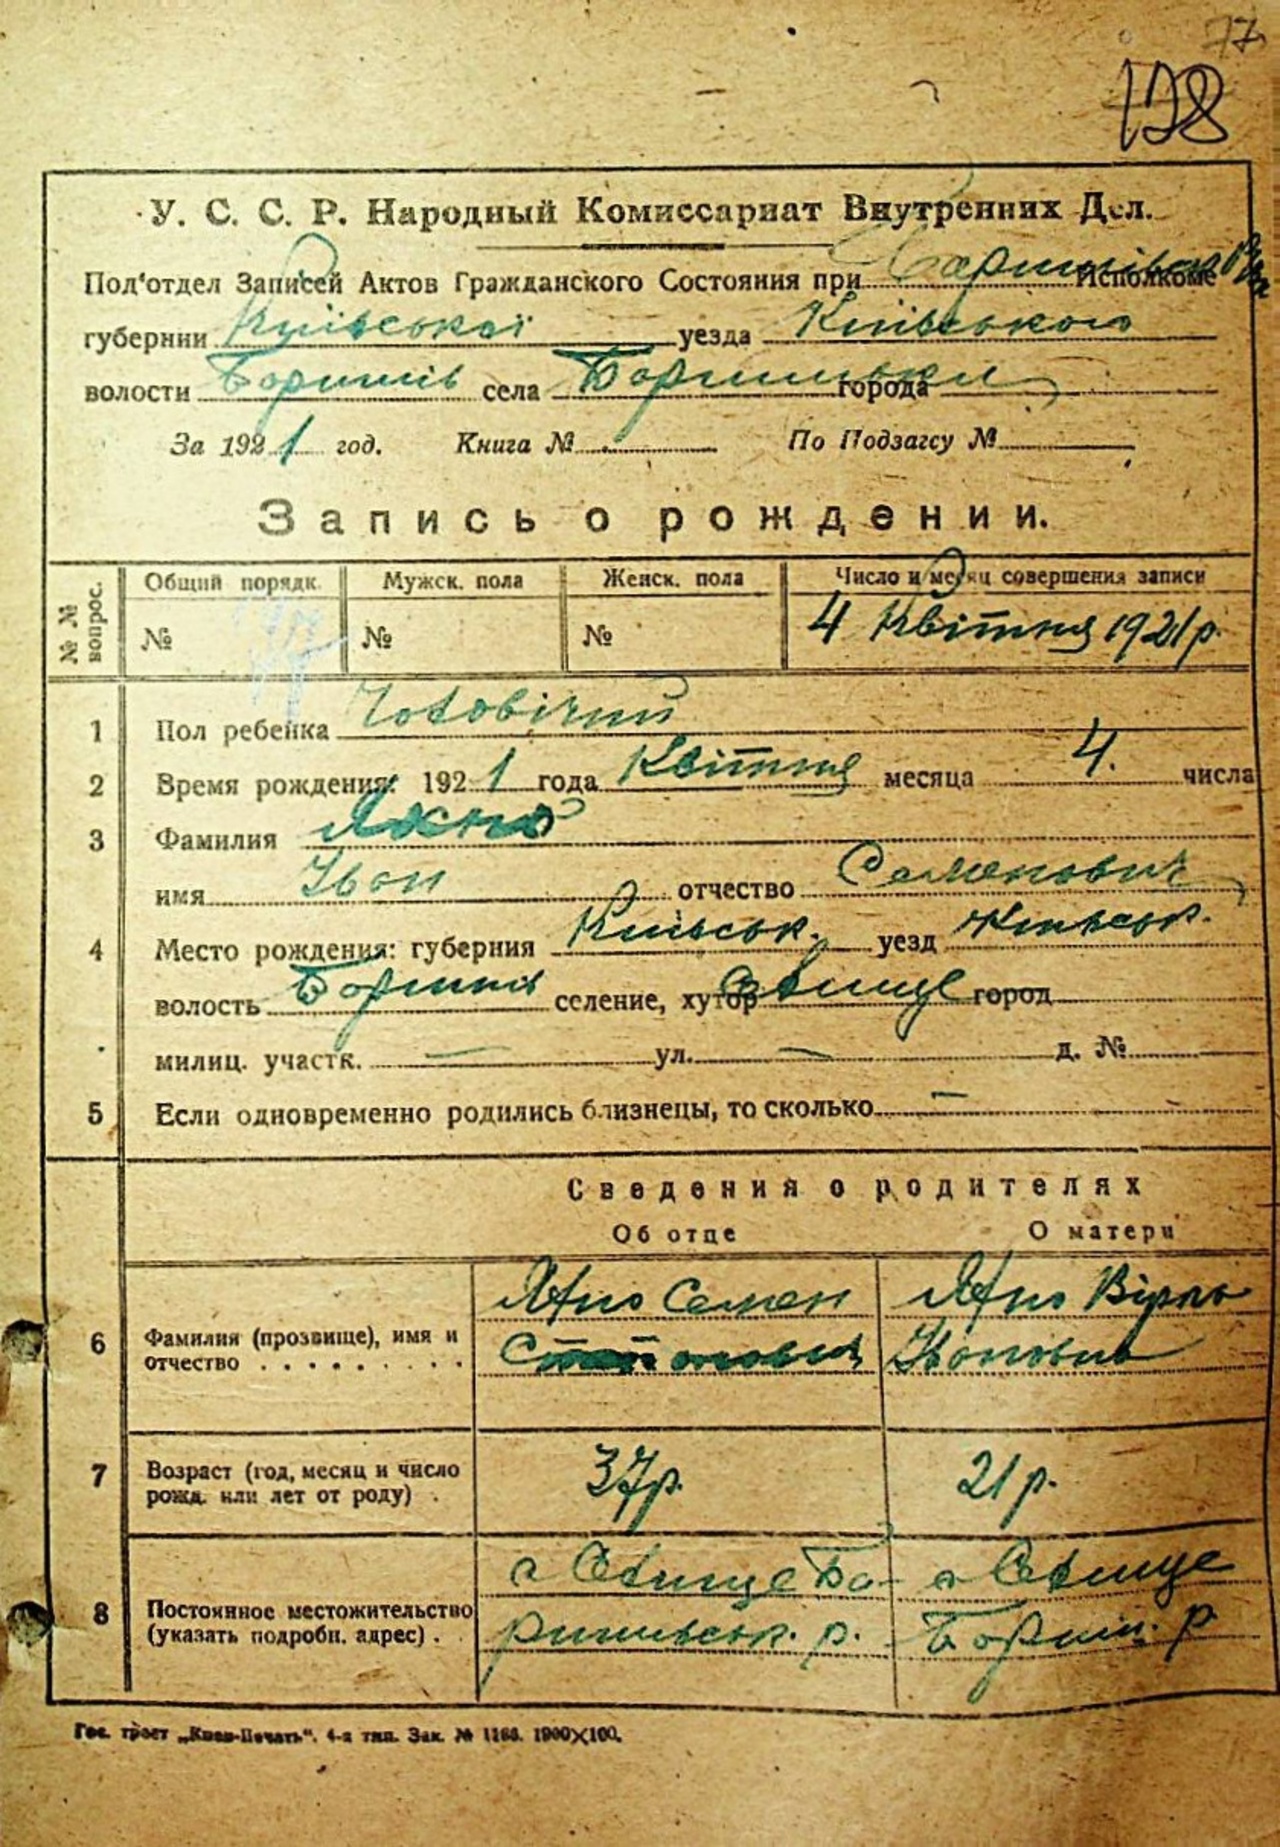 77
128
У. С. С. Р. Народный Комиссариат Внутренних Дел.
Под'отдел Записей Актов Гражданского Состояния при Исполкоме
губернии Київської уезда Київського
волости Баришів села Баришівки города
За 1921 год. Книга № По Подзагсу №
Запись о рождении.
№ № вопрос. Общий порядк. Мужск. пола Женск. пола Число и месяц совершения записи
№ № № 4 Квітня 1921 р.
1 Пол ребенка Чоловічий
2 Время рождения: 1921 года Квітня месяца 4. числа
3 Фамилия Яхно
имя Іван отчество Семенович
4 Место рождения: губерния Київськ. уезд Київськ.
волость Баришів селение, хутор Селище город
милиц. участк. — ул. — д. №
5 Если одновременно родились близнецы, то сколько —
Сведения о родителях
Об отце О матери
6 Фамилия (прозвище), имя и отчество
Яхно Семен
Яхно
7 Возраст (год, месяц и число рожд. или лет от роду) . 37 р. 21 р.
8 Постоянное местожительство (указать подробн. адрес) .
с Селище Ба-
ришівськ. р.
с Селище
Бариш. р
Гос. трест „Киев-Печать". 4-я тип. Зак. № 1166. 1900×100.